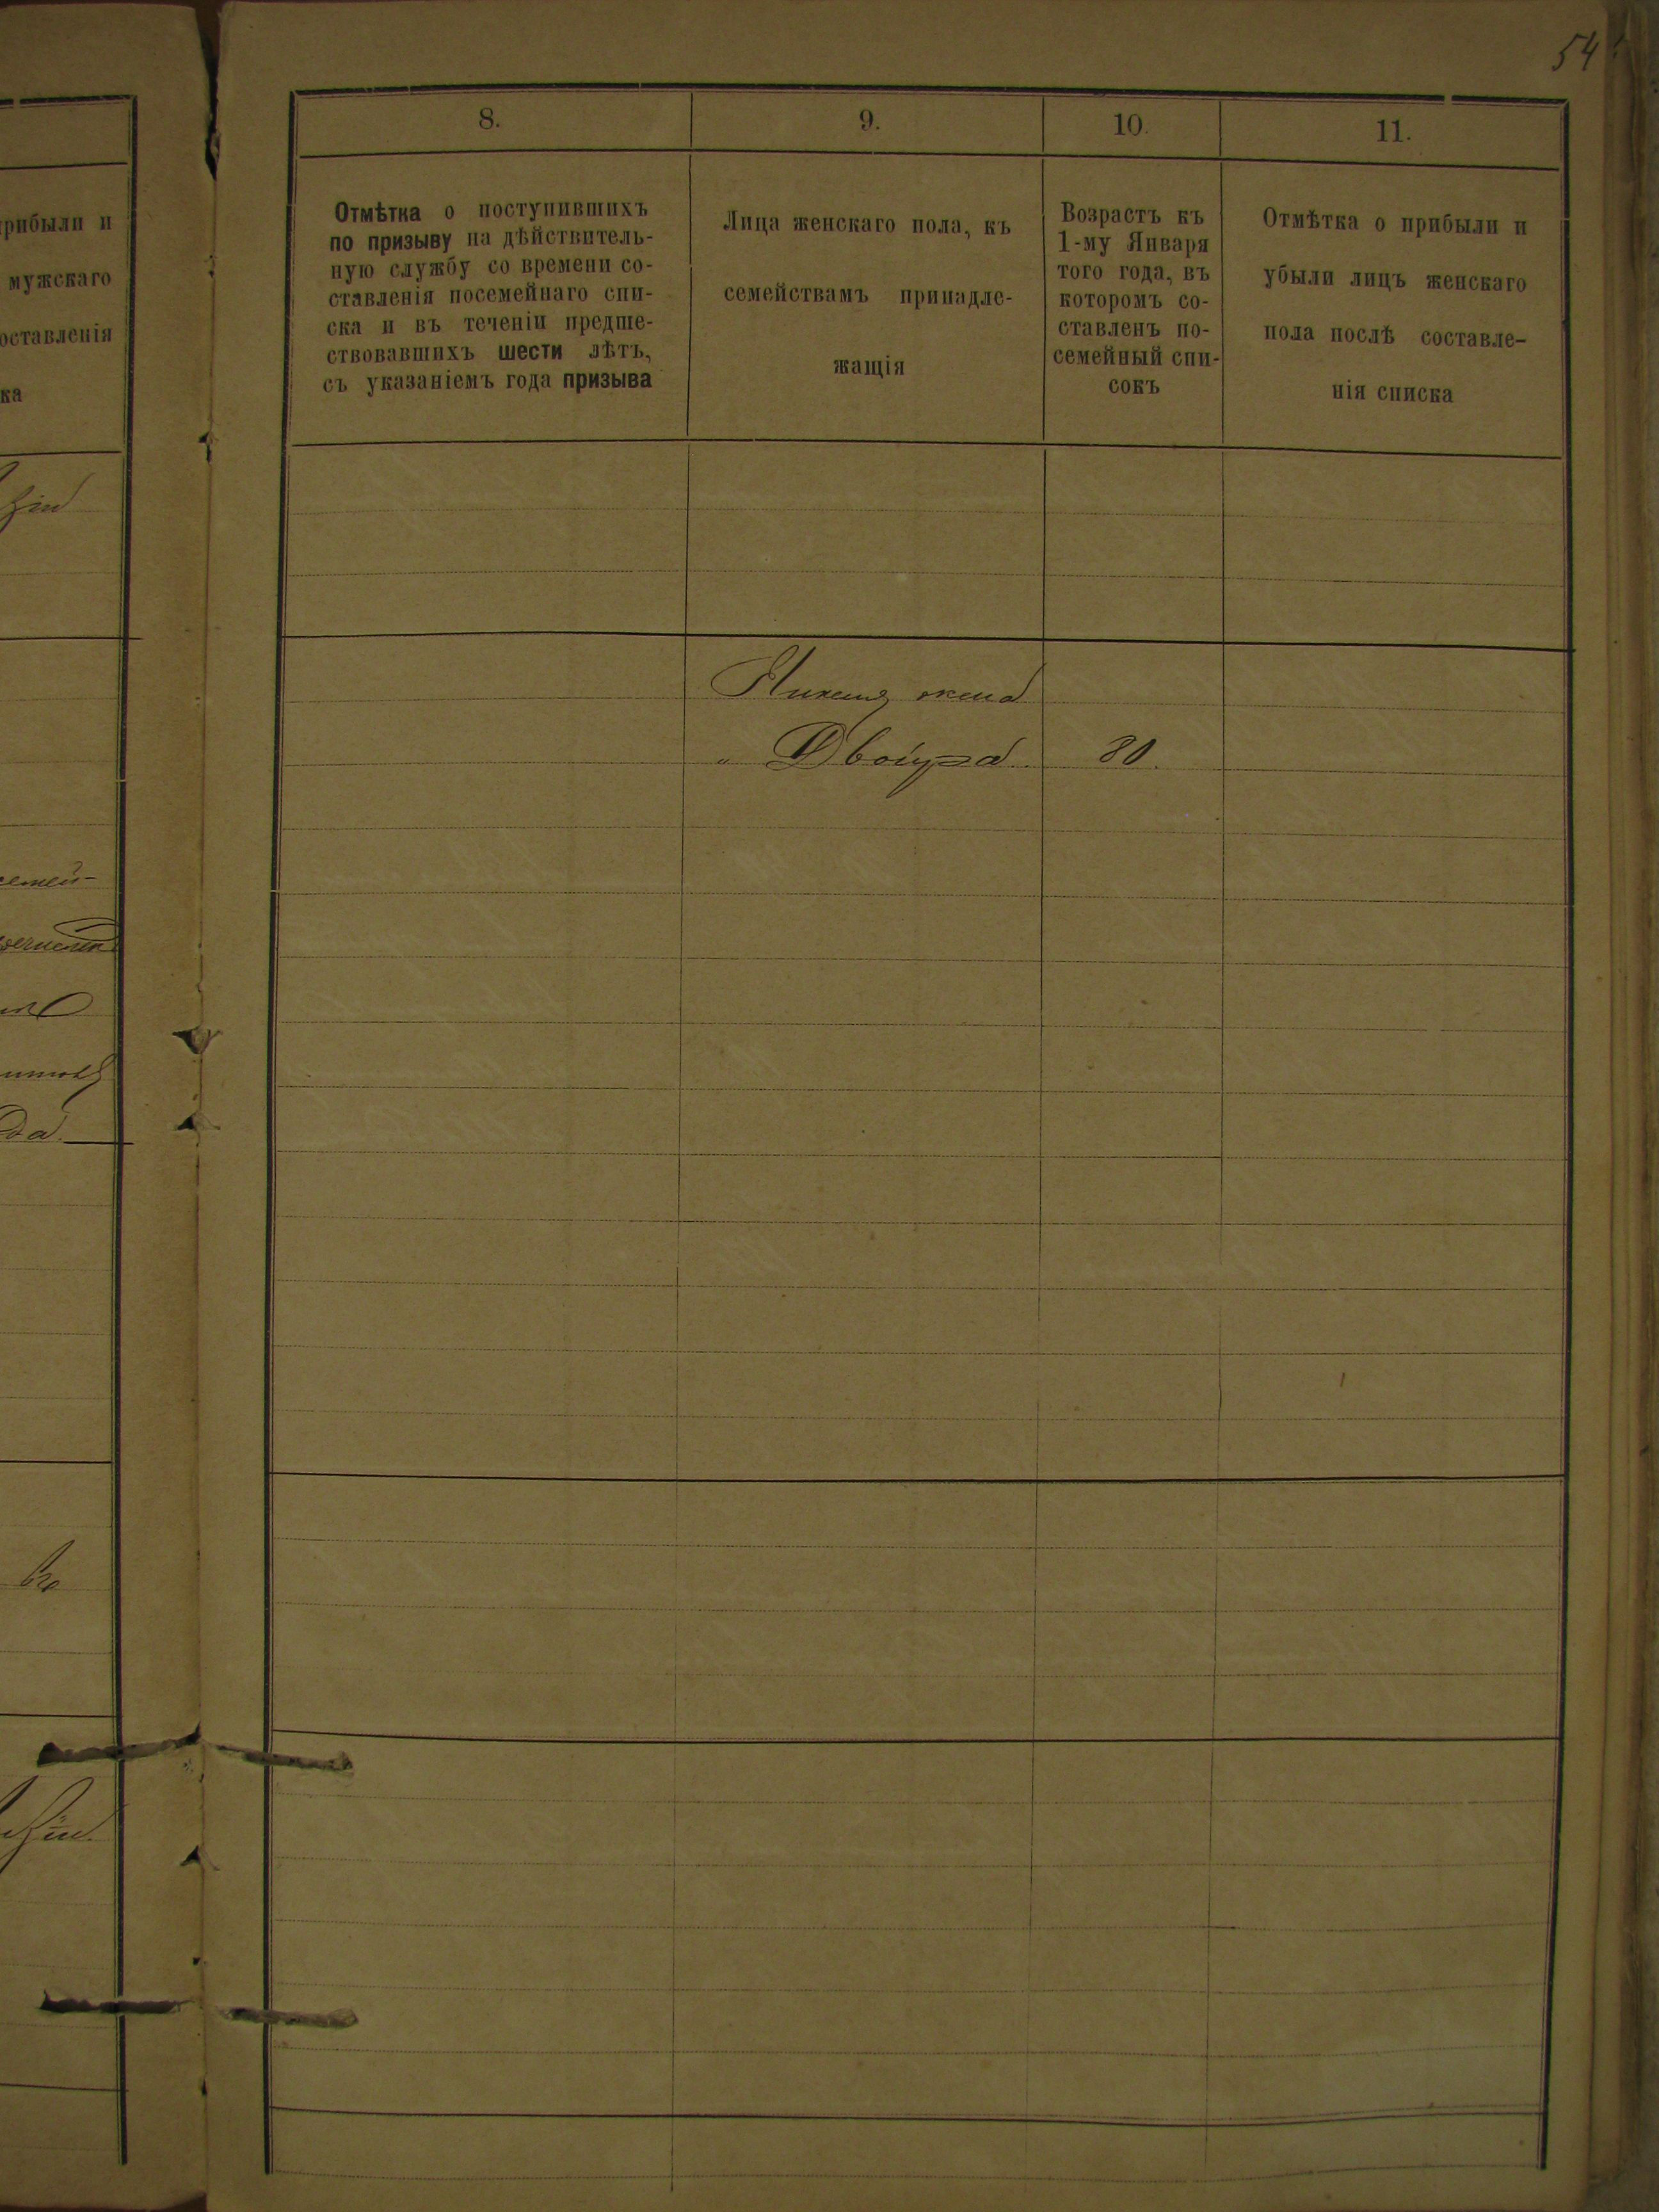 54
рибыли и
мужскаго
оставленія
ка
8.
9.
10.
11.
Отмѣтка о поступившихъ
по призыву на дѣйствитель-
ную службу со времени со-
ставленія посемейнаго спи-
ска и въ теченіи предше-
ствовавшихъ шести лѣтъ,
съ указаніемъ года призыва
Лица женскаго пола, къ
семействамъ принадле-
жащія
Возрастъ къ
1-му Января
того года, въ
которомъ со-
ставленъ по-
семейный спи-
сокъ
Отмѣтка о прибыли и
убыли лицъ женскаго
пола послѣ составле-
нія списка
жена
" Двойра 80.
семей-
да.